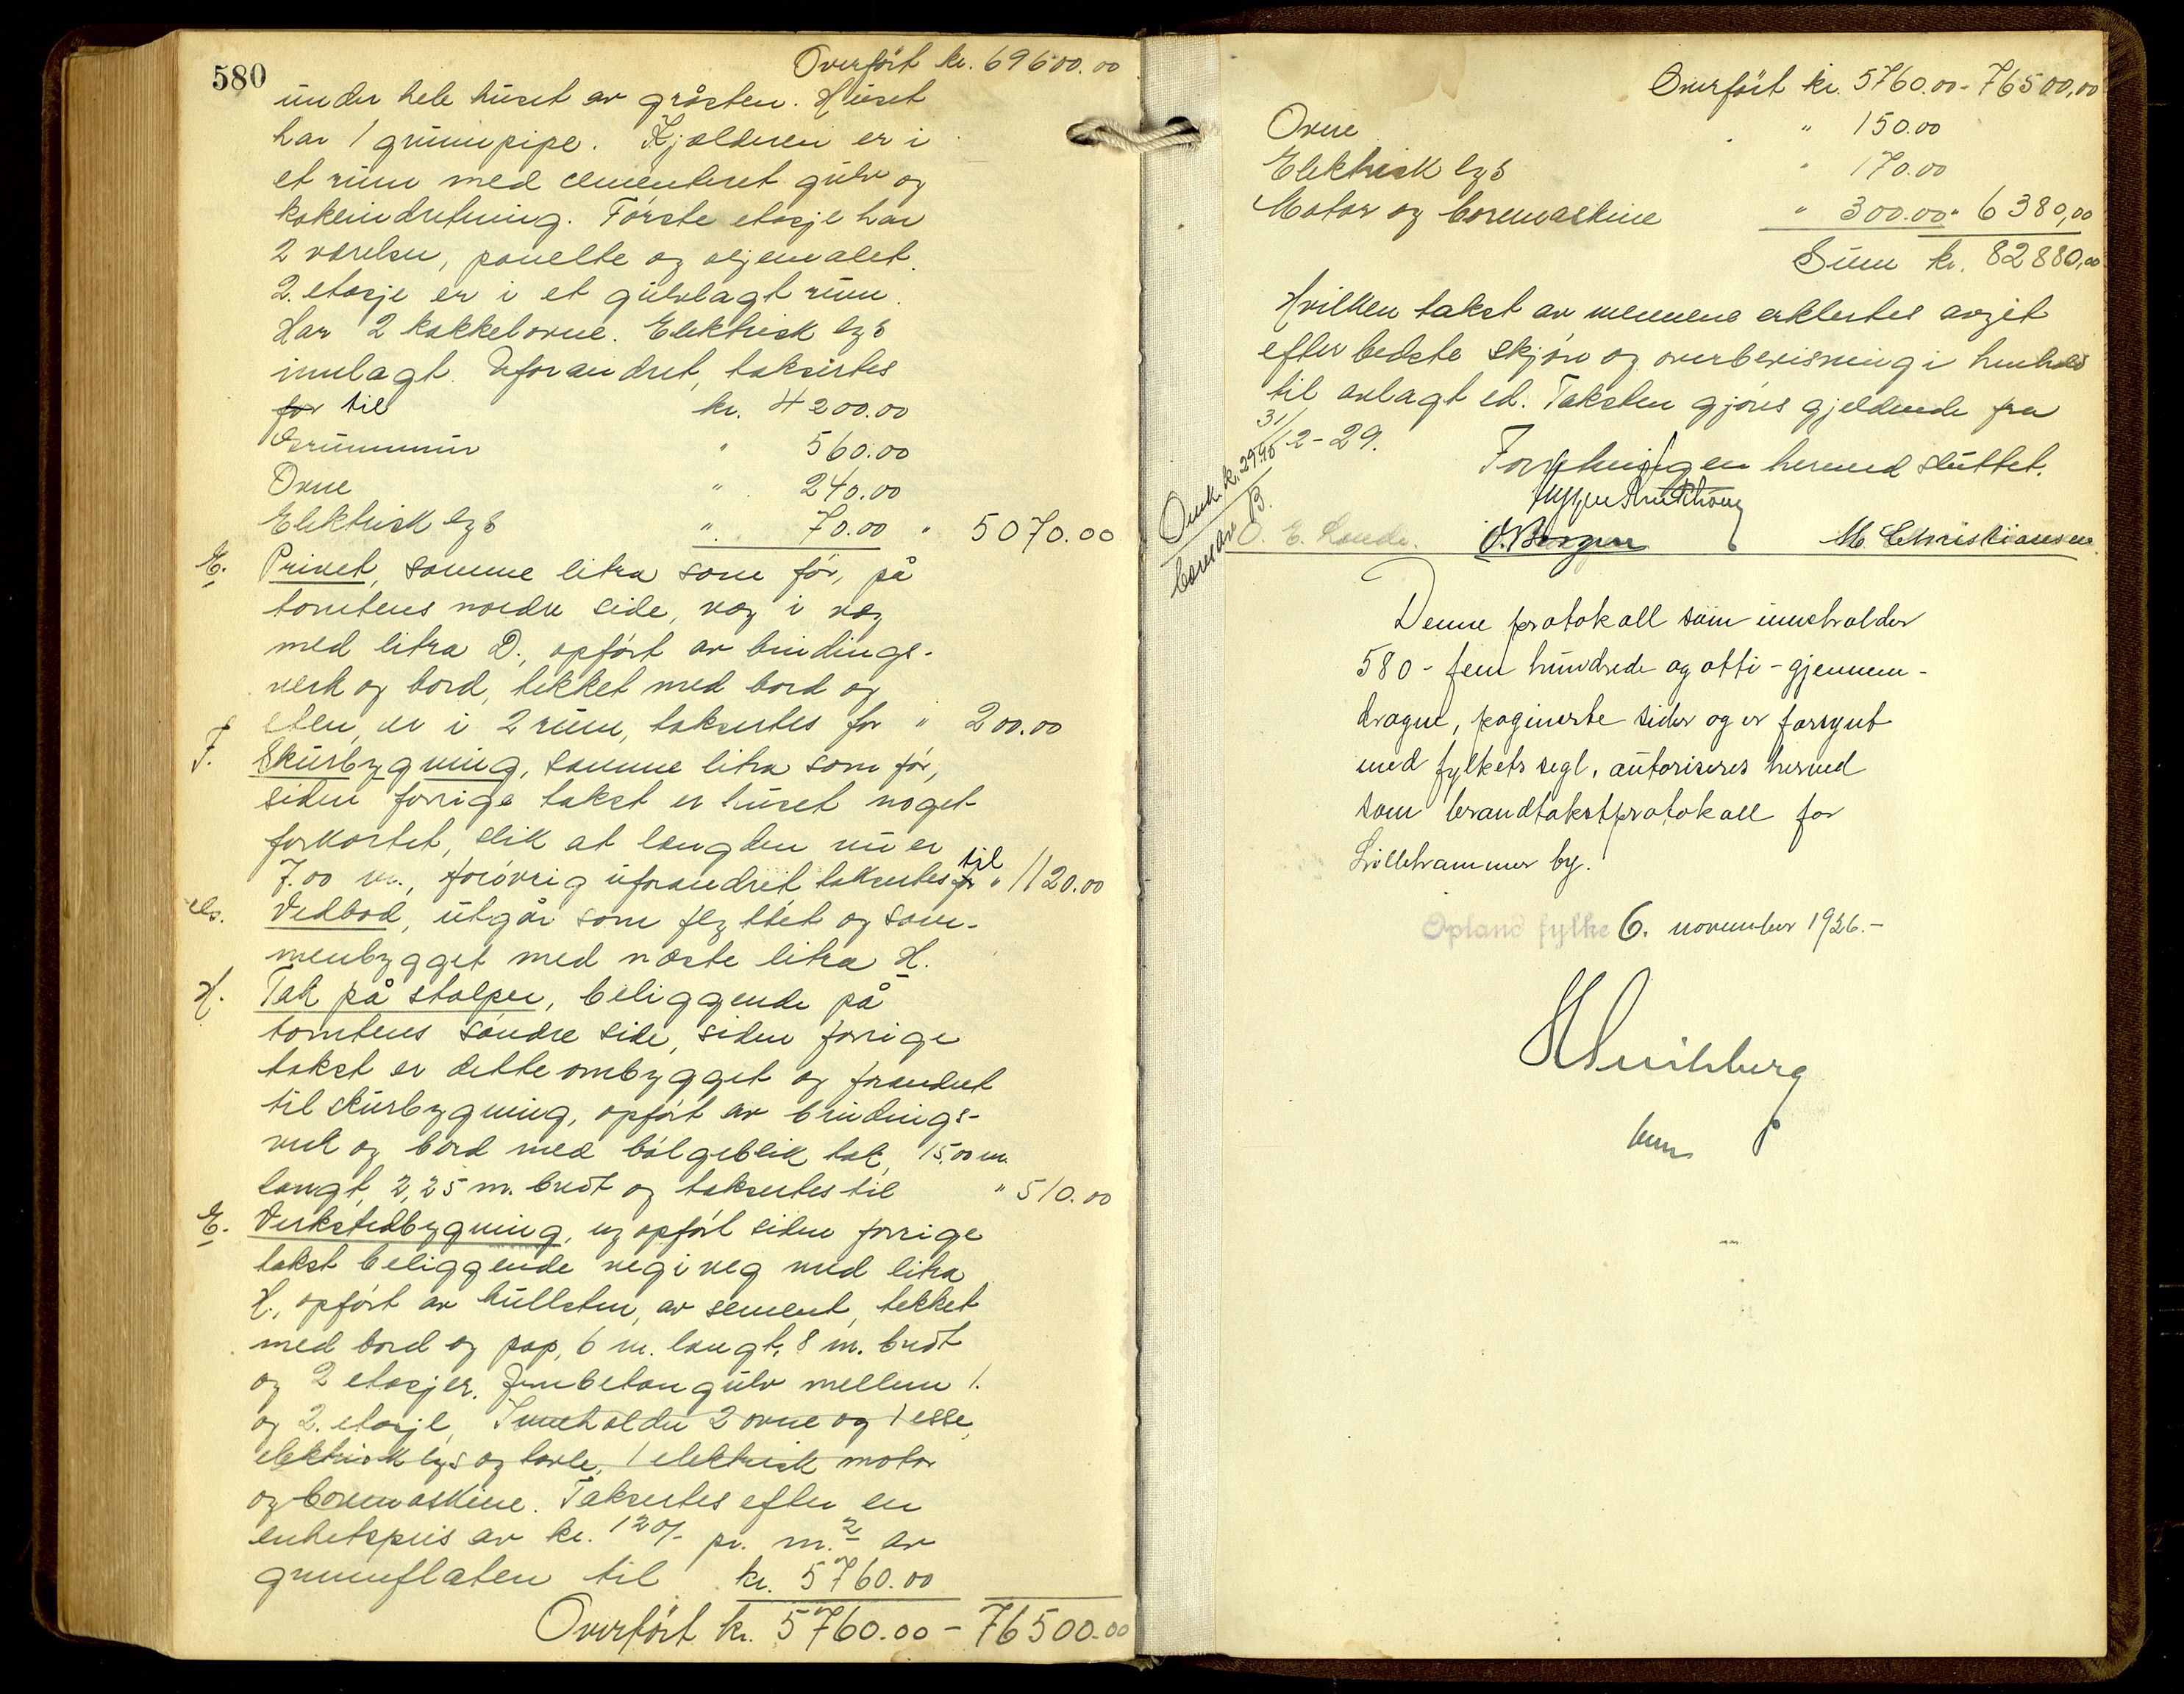 580
Overført kr. 69600.00
under hele huset av gråsten. Huset
har 1 grunnpipe. Kjælderen er i
et rum med cementeret gulv og
kokeindretning. Første etasje har
2 værelser, panelte og oljemalet.
2. etasje er i et gulvlagt rum.
Har 2 kakkelovne. Elektrisk lys
innlagt. Uforandret, taksertes
for til kr. 4200.00
Grunnmur " 560.00
Ovne " 240.00
Elektrisk lys " 70.00 " 5070.00
E. Privet, samme litra som før, på
tomtens nordre side, væg i væg
med litra D., opført av bindings-
verk og bord, tekket med bord og
sten, er i 2 rum, taksertes for " 200.00
F. Skurbygning, samme litra som før,
siden forrige takst er huset noget
forkortet, slik at længden nu er
7.00 m., forøvrig uforandret taksertes for til " 1120.00
Vedbod, utgår som flyttet og sam-
menbygget med næste litra H.
H. Tak på stolper, beliggende på
tomtens søndre side, siden forrige
takst er dette ombygget og forandret
til skurbygning, opført av bindings-
verk og bord med bølgeblik tak, 15,00 m.
langt, 2,25 m. bredt og taksertes til " 510.00
E. Verkstedbygning, ny opført siden forrige
takst beliggende veg i veg med litra
H., opført av hullsten, av sement, tekket
med bord og pap, 6 m. langt, 8 m. bredt
og 2 etasjer. Jernbetongulv mellem 1.
og 2. etasje, Inneholder 2 ovne og 1 esse,
elektrisk lys og tavle, 1 elektrisk motor
og boremaskine. Taksertes efter en
enhetspris av kr. 120/- pr. m.2 av
grunnflaten til kr. 5760.00
Overført kr. 5760.00 - 76500.00
Overført kr. 5760.00 - 76500,00
Ovne " 150.00
Elektrisk lys " 170.00
Motor og boremaskine " 300.00 " 6380,00
Sum kr. 82880,00
Hvilken takst av mennene erklertes avgit
efter bedste skjøn og overbevisning i henhold
til avlagt ed. Taksten gjøres gjeldende fra
31/12-29.
Forretningen hermed sluttet.
Omk. kr.
B.
O. E. Lande. M. Christiansen
Denne protokoll som inneholder
580 - fem hundrede og otti - gjennem-
dragne, paginerte sider og er forsynt
med fylkets segl, autoriseres herved
som brandtakstprotokoll for
Lillehammer by.
Opland fylke 6. november 1926.-